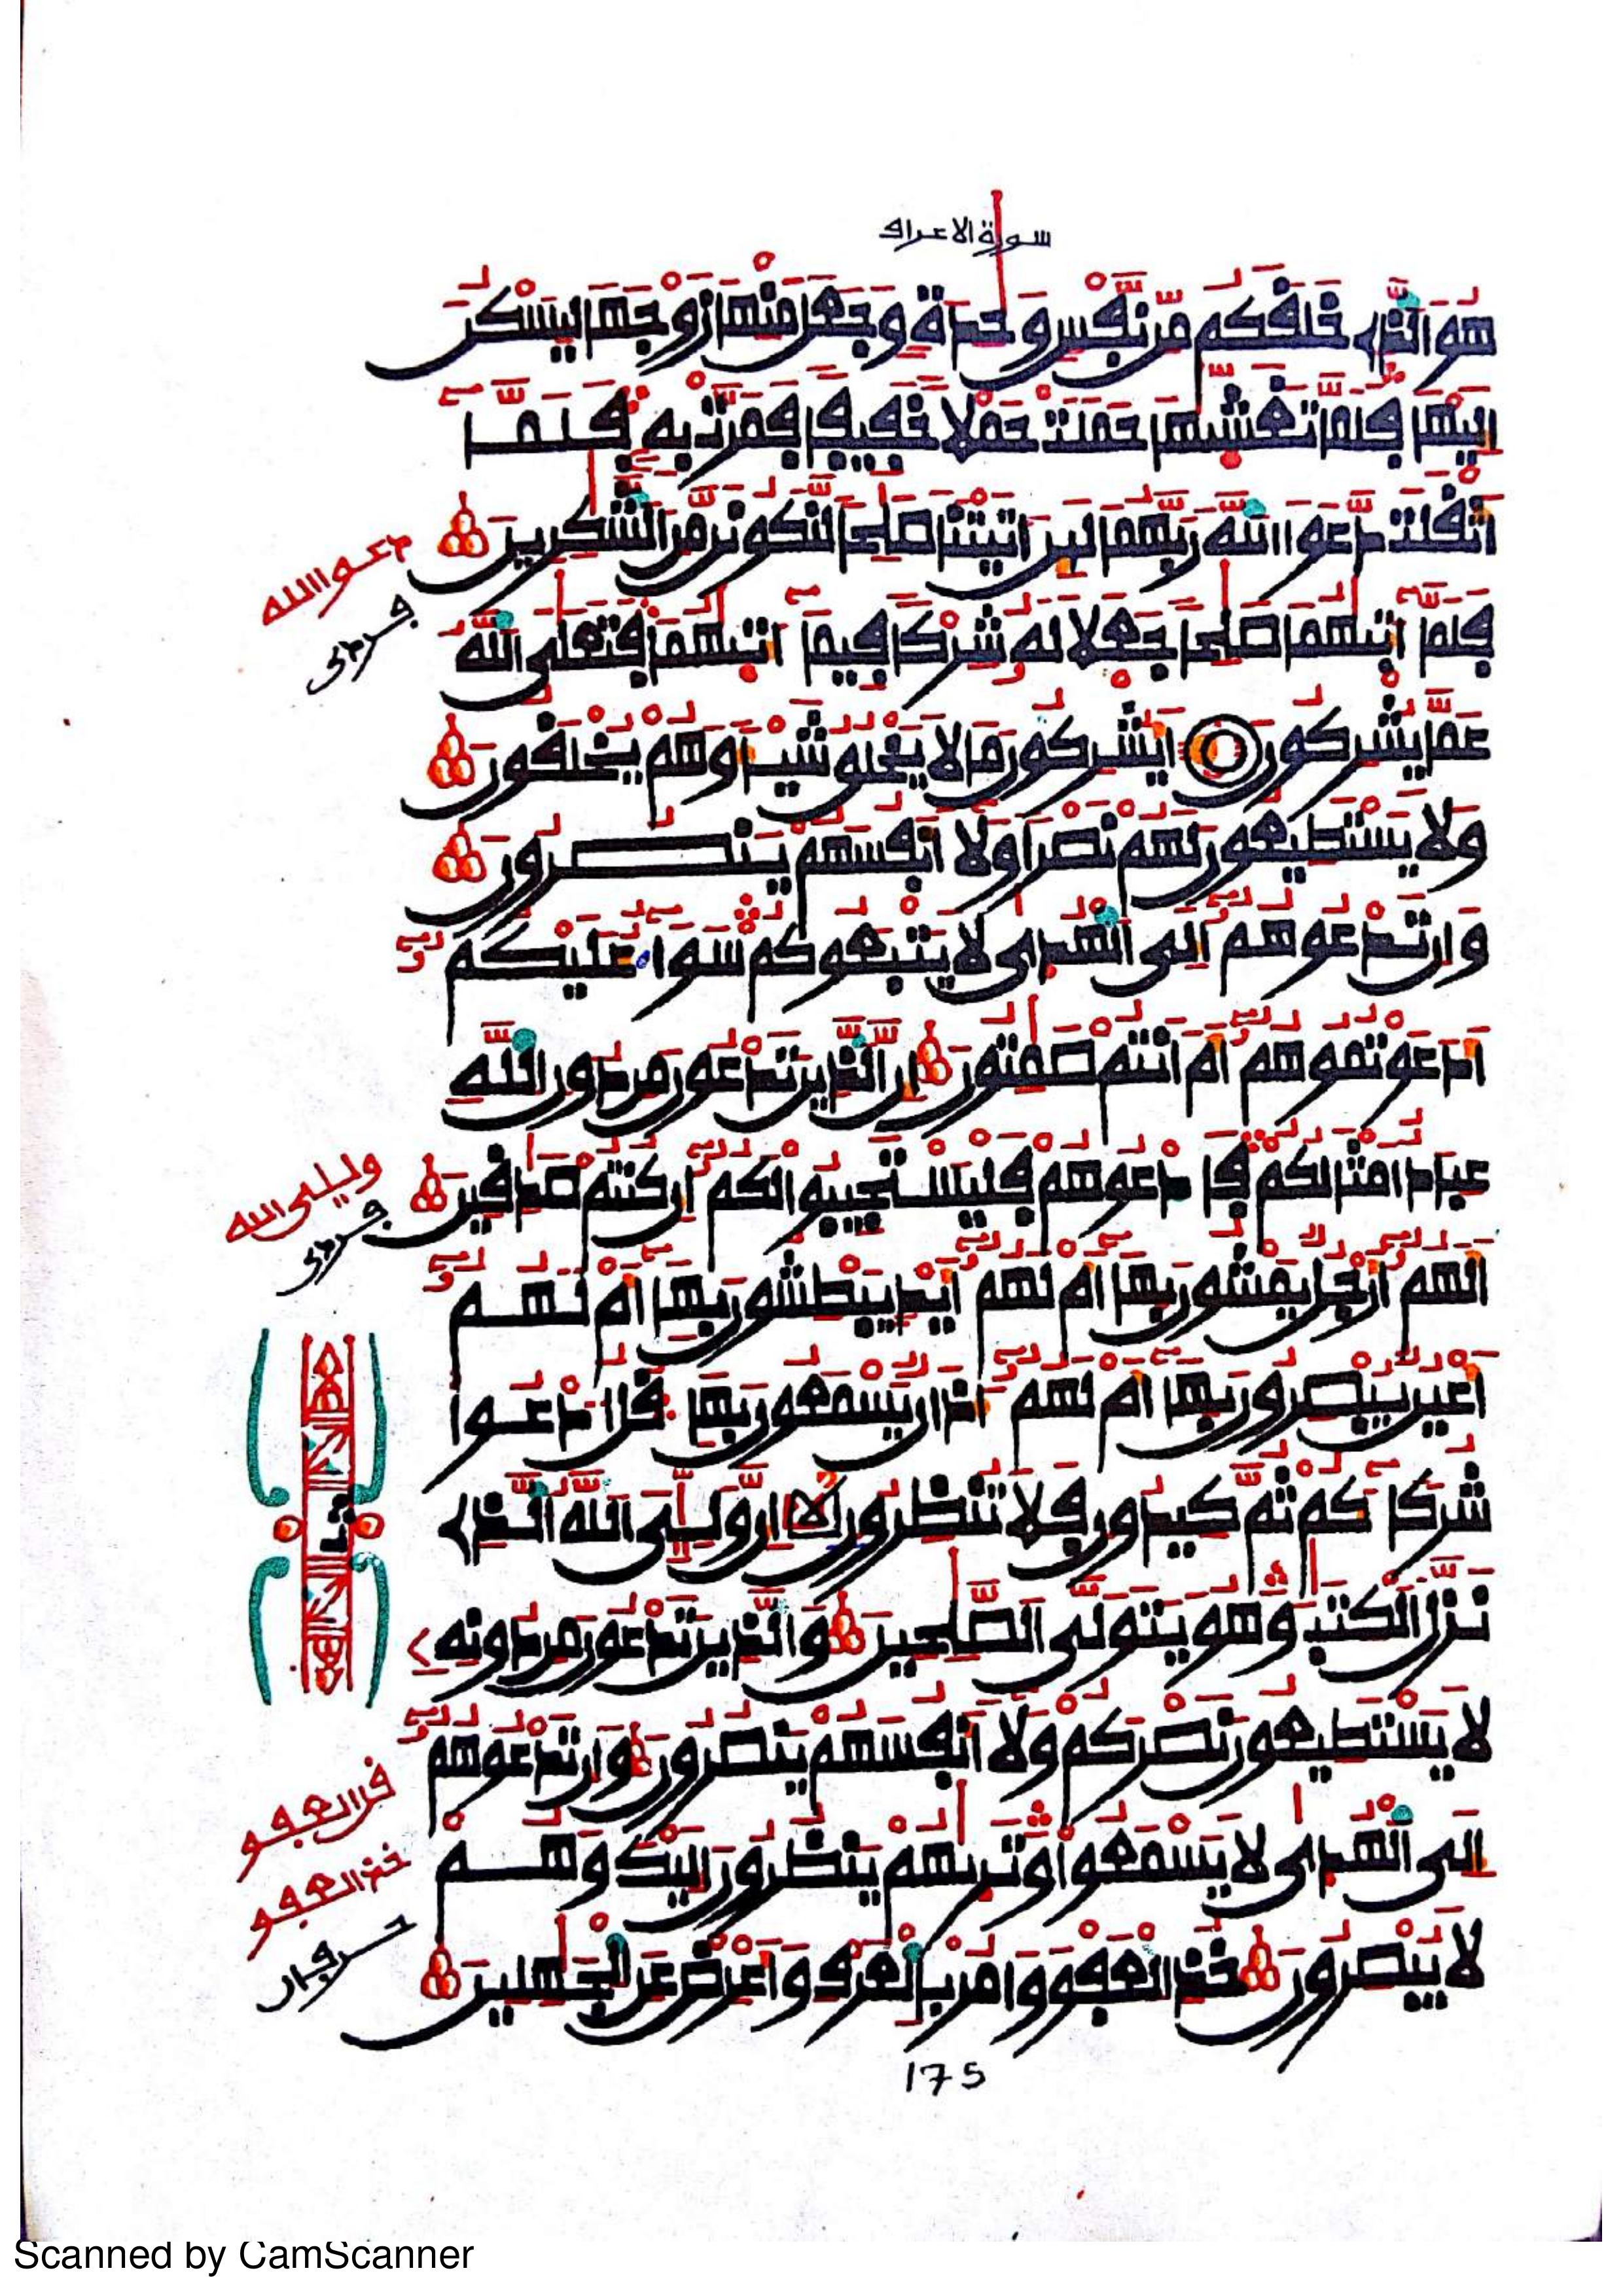 سورة الاعراف
هُوَ الذِے خَلَفَكُم مِّن نَّفْسٍ وَحِدَةٍ وَجَعَلَ مِنْهَا زَوْجَهَا لِيَسْكُنَ
إِلَيْهَا فَلَمَّا تَغَشّيٰهَا حَمَلَتْ حَمْلًا خَفِيفًا فَمَرَّتْ بِهِ فَلَمَّا
أَثْقَلَت دَّعَوَا اَللَّهَ رَبَّهُمَا لَئِنَ اٰتَيْتَنَا صَٰلِحًا لَّنَكُونَنَّ مِنَ الشَّٰكِرِينَ
دعوا الله
فردى
فَلَمَّا ءَاتٰيهُمَا صَٰلِحًا جَعَلَا لَهُ شِرْكًا فِيمَا ءَاتٰيهُمَا فَتَعَٰلَى اَللَّهُ
عَمَّا يُشْرِكُونَ أَيُشْرِكُونَ مَا لَا يَخْلُقُ شَيْـًٔا وَهُمْ يُخْلَقُونَ
وَلَا يَسْتَطِيعُونَ لَهُمْ نَصْرًا وَلَا أَنفُسَهُمْ يَنصُرُونَ
وَإِن تَدْعُوهُمُ إِلَى اَلْهُدٰى لَا يَتْبَعُوكُمْ سَوَآءٌ عَلَيْكُمُ
أَدَعَوْتُمُوهُمُ أَمَ اَنتُمْ صَٰمِتُونَ إِنَّ اَلذِينَ تَدْعُونَ مِن دُونِ اِللَّهِ
عِبَادٌ اَمْثَالُكُمْ فَادْعُوهُمْ فَلْيَسْتَجِيبُوا لَكُمُ إِن كُنتُمْ صَٰدِقِينَ
وليى الله
فردى
أَلَهُمُ أَرْجُلٌ يَمْشُونَ بِهَا أَمْ لَهُمُ أَيْدٍ يَبْطِشُونَ بِهَا أَمْ لَهُمُ
أَعْيُنٌ يُبْصِرُونَ بِهَا أَمْ لَهُمُ ءَاذَانٌ يَسْمَعُونَ بِهَا قُلُ ادْعُوا
شُرَكَآءَكُمْ ثُمَّ كِيدُونِ فَلَا تُنظِرُونِ إِنَّ وَلِـِّۧيَ اَللَّهُ اُلذِے
ثمن
نَزَّلَ اَلْكِتَٰبَ وَهُوَ يَتَوَلَّى اَلصَّٰلِحِينَ وَالذِينَ تَدْعُونَ مِن دُونِهِ
لَا يَسْتَطِيعُونَ نَصْرَكُمْ وَلَا أَنفُسَهُمْ يَنصُرُونَ وَإِن تَدْعُوهُمُ
إِلَى اَلْهُدٰى لَا يَسْمَعُوا وَتَرٰىهُمْ يَنظُرُونَ إِلَيْكَ وَهُمْ
قل العفو
خذ العفو
حرفان
لَا يُبْصِرُونَ خُذِ اِلْعَفْوَ وَامُرْ بِالْعُرْفِ وَأَعْرِضْ عَنِ اِلْجَٰهِلِينَ
175
Scanned by CamScanner